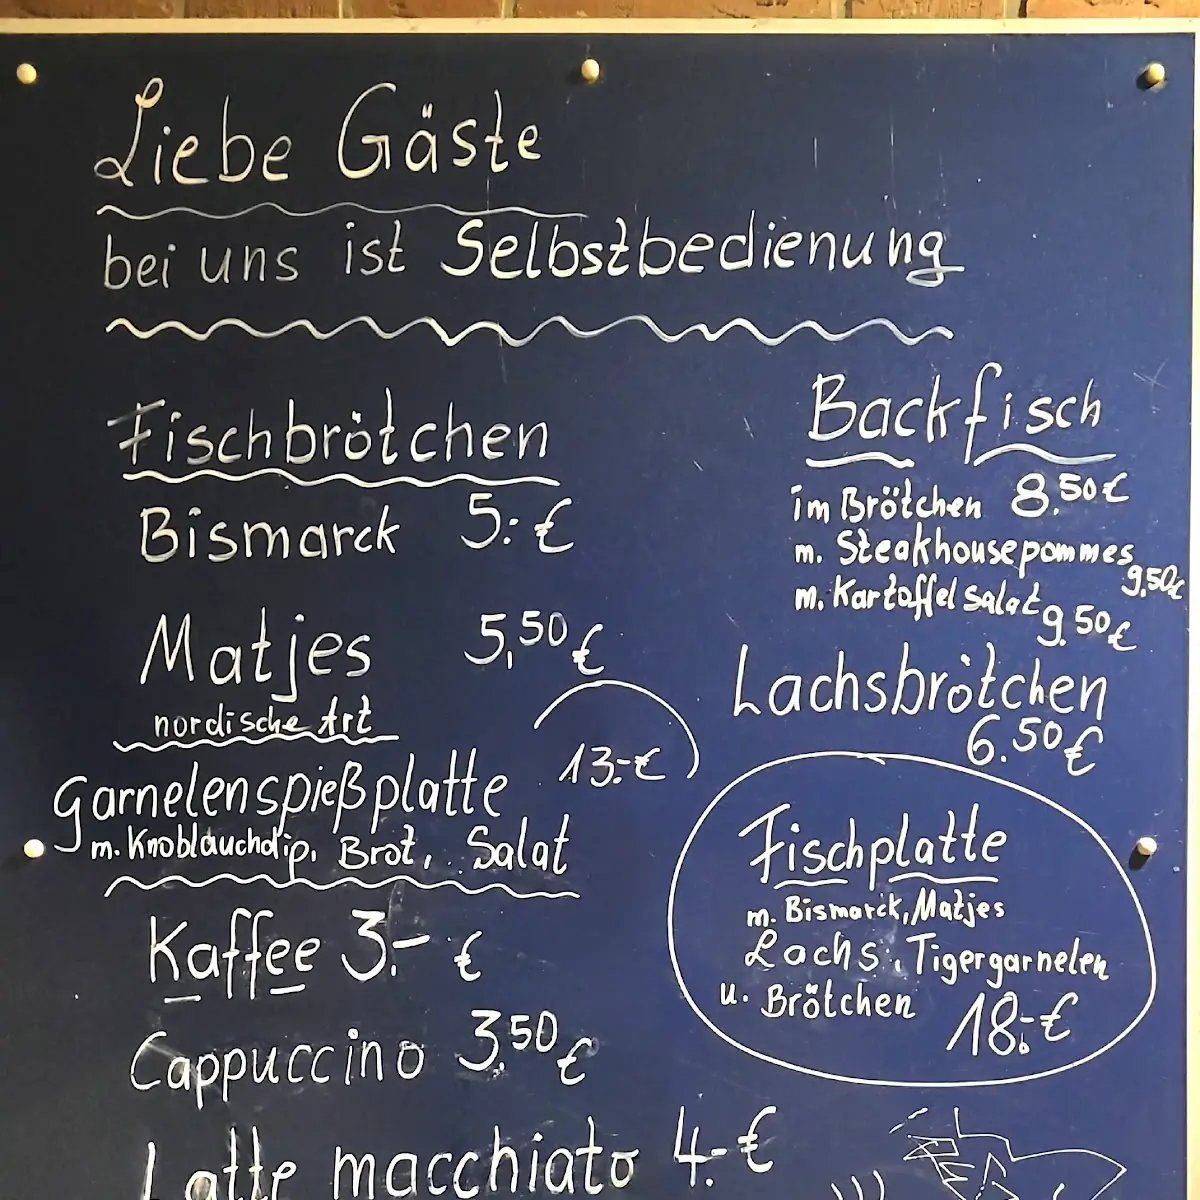 Liebe Gäste
bei uns ist Selbstbedienung
Fischbrötchen
Bismarck 5.- €
Matjes 5,50 €
nordische Art
Garnelenspießplatte 13.- €
m. Knoblauchdip, Brot, Salat
Kaffee 3.- €
Cappuccino 3,50 €
Latte macchiato 4.- €
Backfisch
im Brötchen 8.50 €
m. Steakhousepommes
9,50€
m. Kartoffelsalat 9.50 €
Lachsbrötchen
6.50 €
Fischplatte
m. Bismarck, Matjes
Lachs, Tigergarnelen
u. Brötchen 18.- €